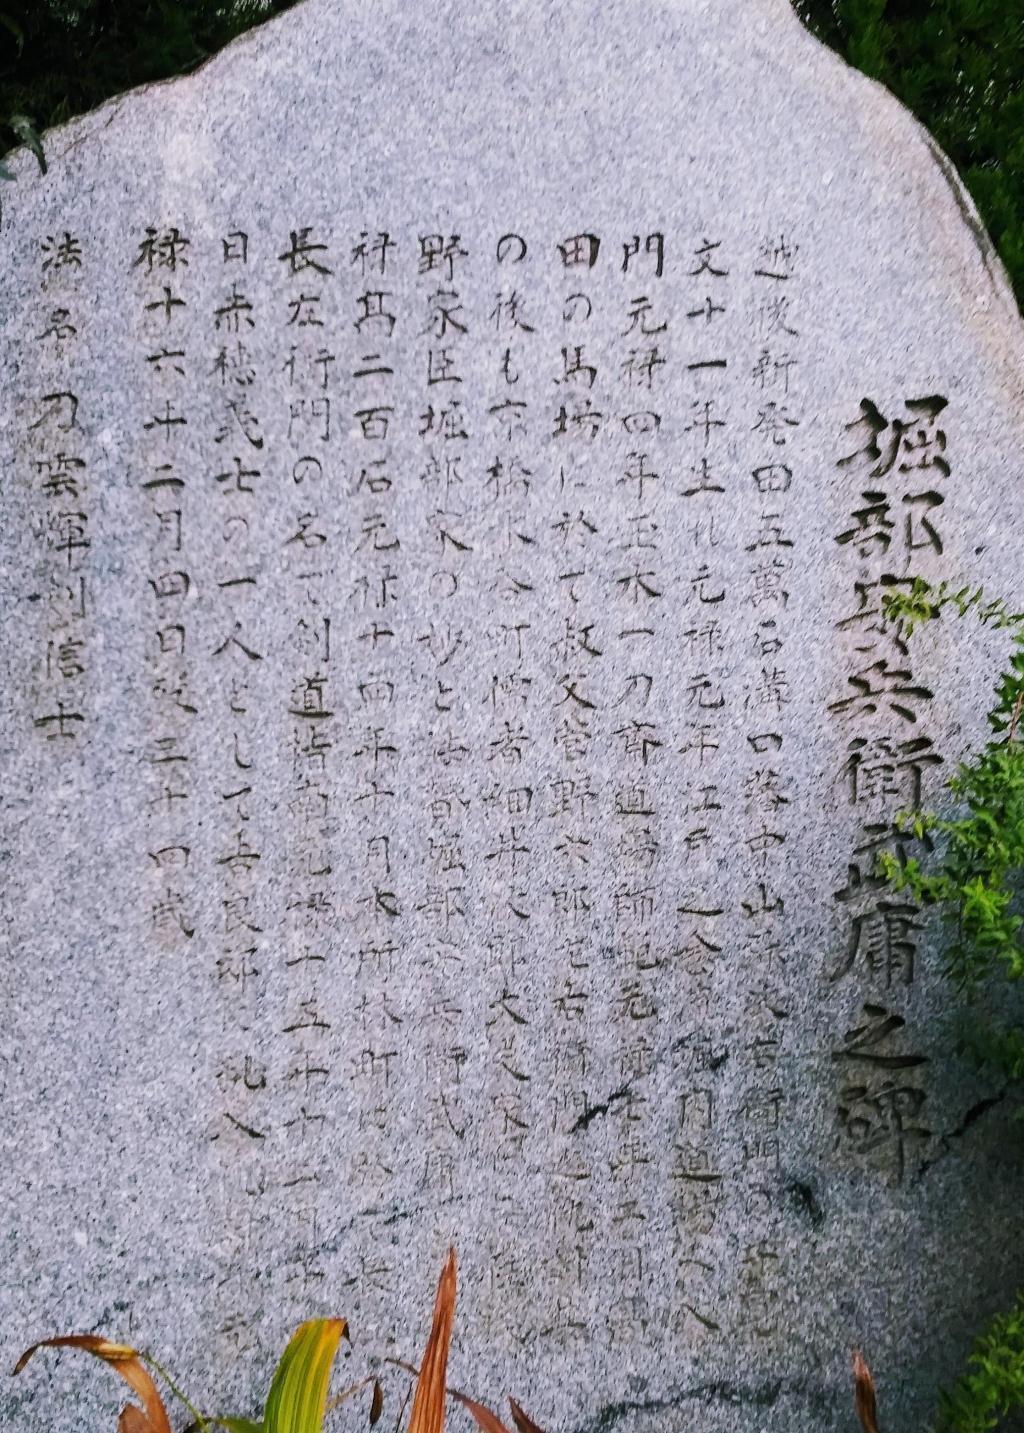 堀部安兵衛武庸之碑
越後新発田五萬石溝口藩中山弥次右衛門の
文十一年生れ元禄元年江戸之念 堀内道場へ入
門元禄四年玉木一刀斎道場師範元禄七年二月高
田の馬場に於て叔父菅野六郎左右衛門
の後も京橋水谷町儒者細井次郎大夫家
野家臣堀部家の妙と法眷堀部安兵衛武庸
禄高二百石元禄十四年十月本所林町に於て長
長左衛門の名で剣道指南元禄十五年十二月十
日赤穂義士の一人として吉良邸に 討入
禄十六年二月四日歿三十四歳
法名刀雲輝剣信士